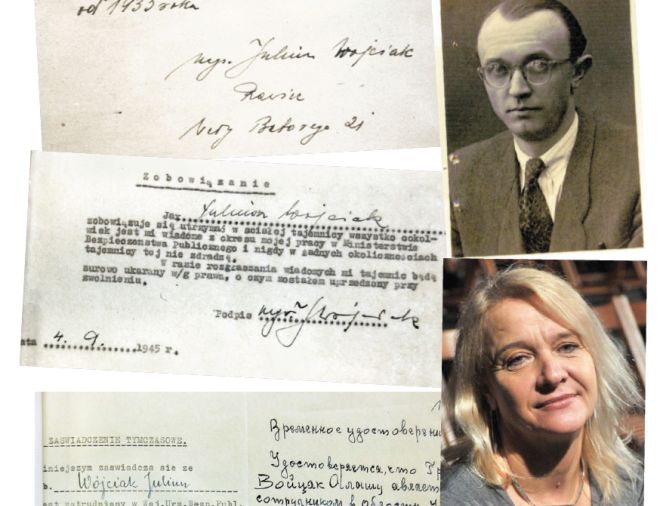 od 1933 roku
Juliusz Wójciak
Zobowiązanie
Ja, Juliusz Wójciak
zobowiązuje się utrzymać w ścisłej tajemnicy wszystko cokol-
wiek jest mi wiadome z okresu mojej pracy w Ministerstwie
Bezpieczeństwa Publicznego i nigdy w żadnych okolicznościach
tajemnicy tej nie zdradzę.
W razie rozgłaszania wiadomych mi tajemnic będę
surowo ukarany w/g prawa, o czym zostałem uprzedzony przy
zwolnieniu.
Podpis
ata 4. 9. 1945 r.
ZAŚWIADCZENIE TYMCZASOWE.
iniejszym zaświadcza się ze
b. Wójciak Juliusz
est zatrudniony w Woj.Urz.Bezp.Publ.
Временное удостоверени
Удостоверяется, что Гр
Войцяк является
сотрудником в